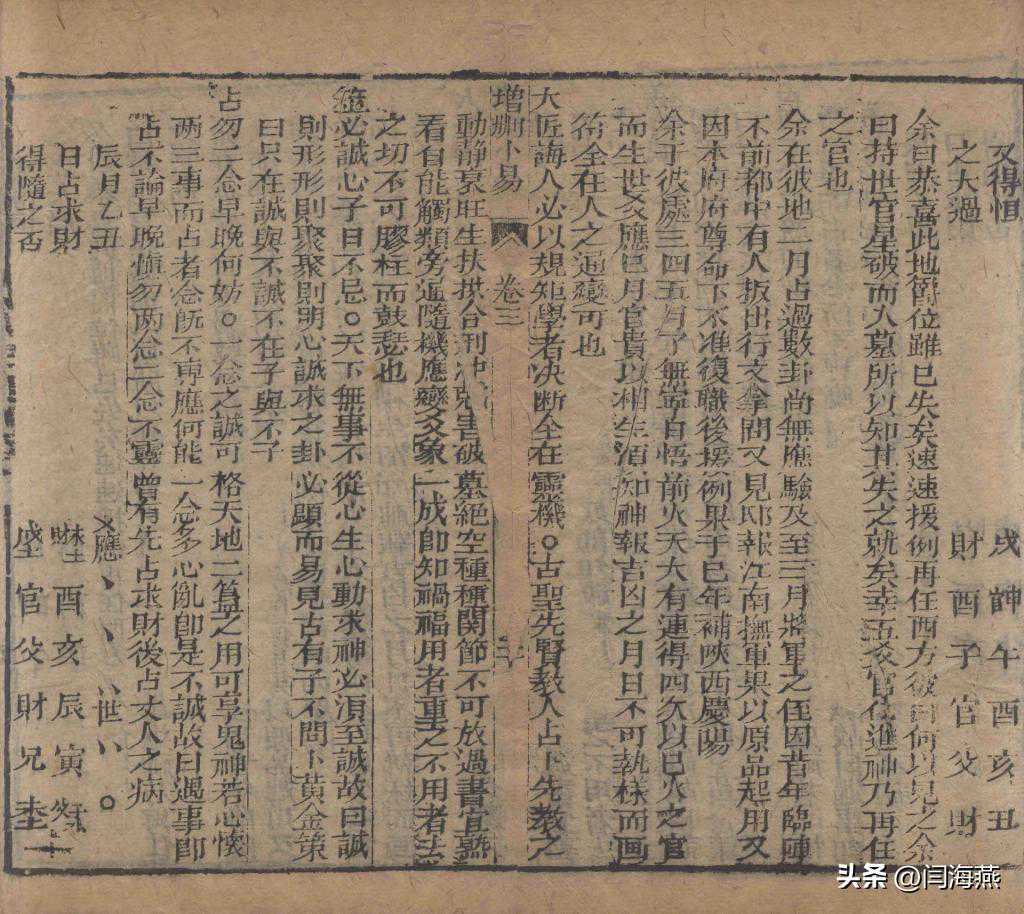 又得恒　　戌　申　午　酉　亥　丑
之大過　　財　酉　子　官　父　財
余曰恭喜此地爵位雖已失矣速速援例再任西方彼曰何以見之余
曰持世官星破而入墓所以知其失之就矣幸五爻官化進神乃再任
之官也
余在彼地二月占過數卦尚無應驗及至三月將軍之侄因昔年臨陣
不前都中有人扳出行文拿問又見邸報江南撫軍果以原品起用又
因本府府尊命下不准復職後援例果于巳年補陝西慶陽
余于彼處三四五月了無罣自悟前火天大有連得四次以巳火之官
而生世爻應巳月官貴以相生須知神報吉凶之月日不可執樣而画
符全在人之通變可也
大匠誨人必以規矩學者决断全在靈機○古聖先賢教人占卜先教之
增刪卜易　卷三　三十
動靜衰旺生扶拱合刑冲尅害破墓絶空種種関節不可放過書宜熟
看自能觸類旁通隨機應變爻象一成卽知禍福用者重之不用者法
之切不可膠柱而鼓瑟也
筮必誠心子日不忌○天下無事不從心生心動求神必湏至誠故曰誠
則形形則聚聚則明心誠求之卦必顯而易見古有子不問卜黄金策
曰只在誠與不誠不在子與不子
占勿二念早晚何妨○一念之誠可格天地二簋之用可享鬼神若心懷
两三事而占者念旣不専應何能一念多心亂卽是不誠故曰遇事卽
占不論早晚慎勿两念三念不靈曾有先占求財後占丈人之病
辰月乙丑　　乂應、、〃世〃。
日占求財　　財　酉　亥　辰　寅
得隨之否　　官　父　財　兄
头条 @闫海燕